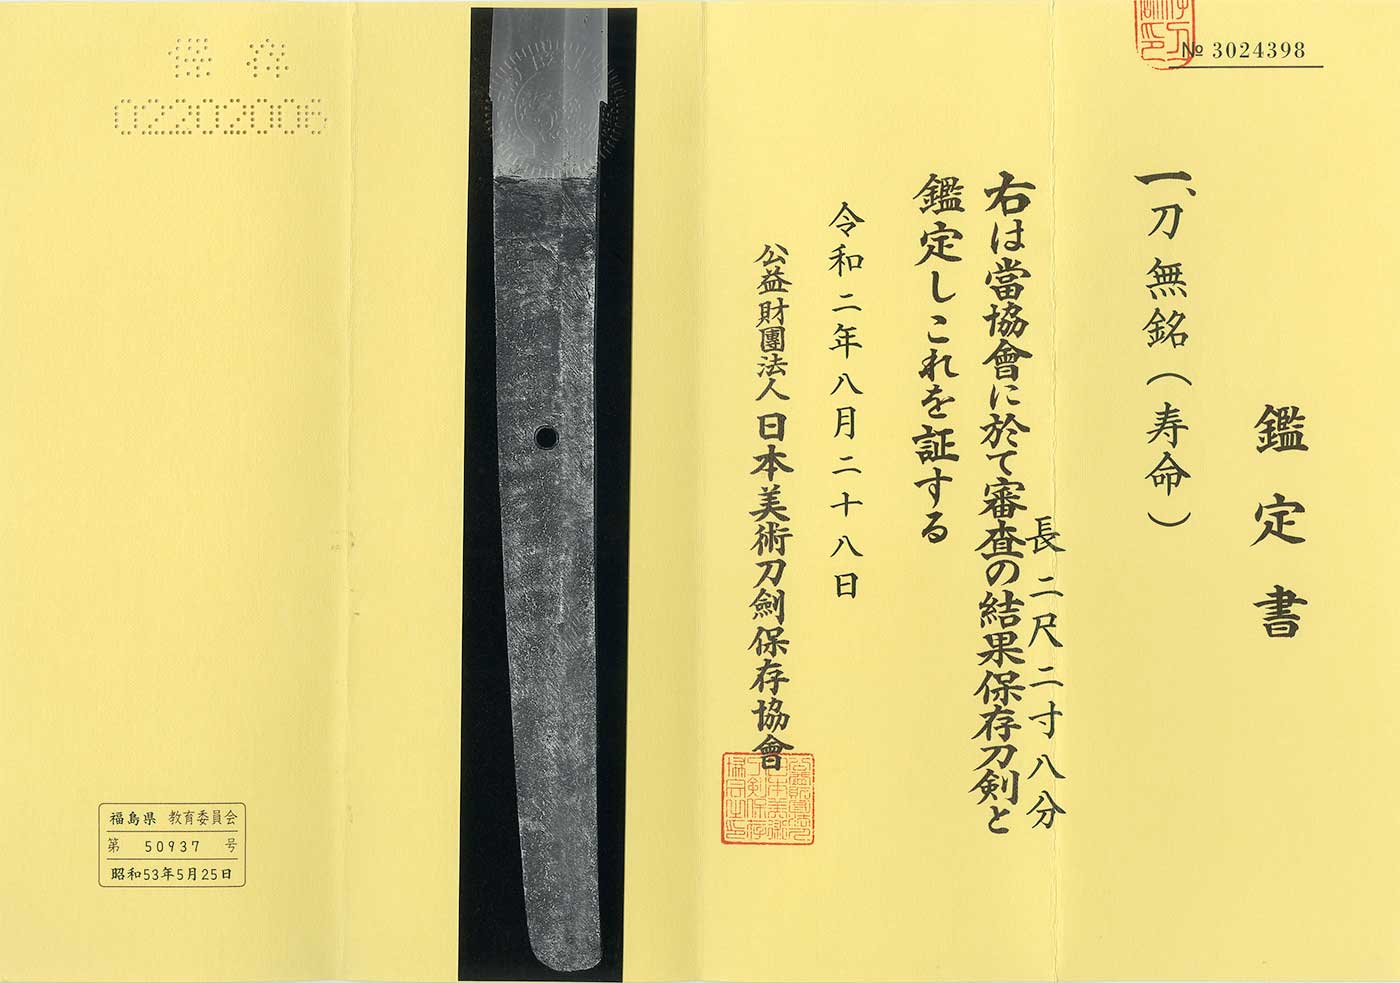 № 3024398
鑑定書
一、刀 無銘(寿命)
長 二尺二寸八分
右は當協會に於て審査の結果保存刀剣と
鑑定しこれを証する
令和二年八月二十八日
公益財團法人 日本美術刀劍保存協會
保存
02202006
福島県 教育委員会
第 50937 号
昭和53年5月25日